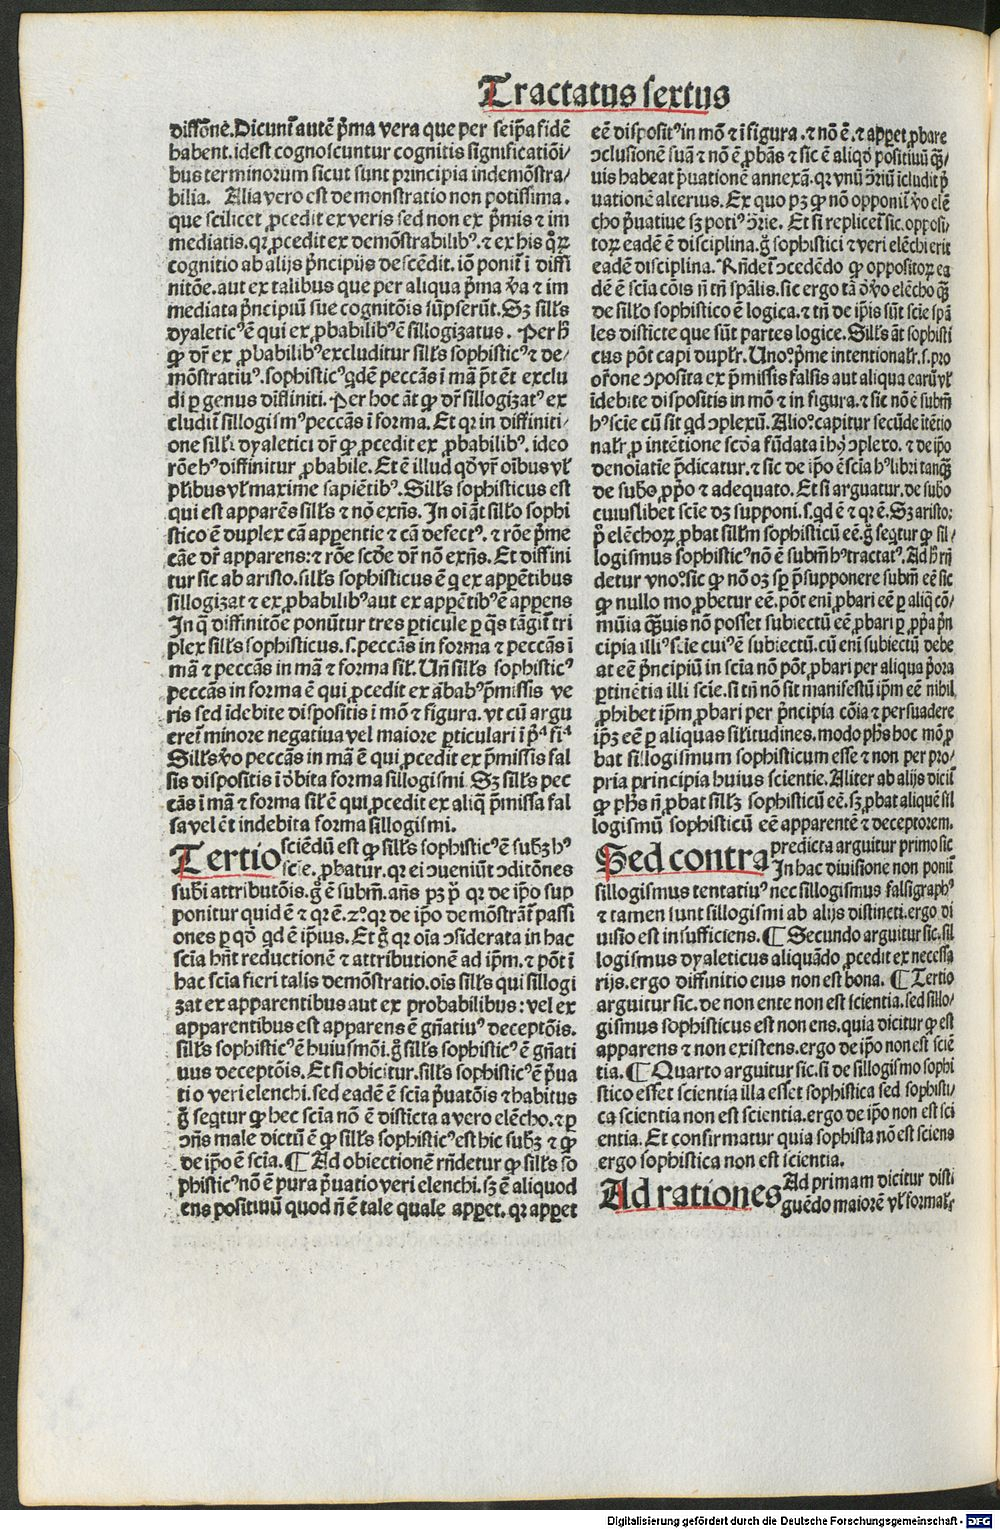 Tractatus sextus
diffōnē. Dicunt᷑ autē p̄ma vera que per seip̄a fidē
habent. idest cognoscuntur cognitis significatiōi/
bus terminorum sicut sunt principia indemōstra/
bilia. Alia vero est demonstratio non potissima.
que scilicet ꝓcedit ex veris sed non ex p̄mis ⁊ im
mediatis. qꝛ ꝓcedit ex demōstrabilibꝰ. ⁊ ex his qͦꝝ
cognitio ab alijs p̄ncipijs descēdit. iō ponit᷑ ī diffi
nitōe. aut ex talibus que per aliqua p̄ma v̄a ⁊ im
mediata p̄ncipiū sue cognitōis sūpserūt. Sꝫ sill̄s
dyaleticꝰ ē qui ex ꝓbabilibꝰ ē sillogizatus. Per hͦ
ꝙ dr̄ ex ꝓbabilibꝰ excluditur sill̄s sophisticꝰ ⁊ de/
mōstratiuꝰ. sophisticꝰ qͥdē peccās ī mā p̄t ēt exclu
di ꝑ genus diffiniti. Per hoc āt ꝙ dr̄ sillogizatꝰ ex
cludit᷑ sillogismꝰ peccās ī forma. Et qꝛ in diffiniti/
one sill̄i dyaletici dr̄ ꝙ ꝓcedit ex ꝓbabilibꝰ. ideo
rōne hꝰ diffinitur ꝓbabile. Et ē illud qd̄ vr̄ oībus vl̓
pl̓ibus vl̓ maxime sapiētibꝰ. Sill̄s sophisticus est
qui est apparēs sill̄s ⁊ nō exn̄s. In oī āt sill̄o sophi
stico ē duplex cā apparentie ⁊ cā defectꝰ. ⁊ rōe p̄me
cāe dr̄ apparens: ⁊ rōe scd̄e dr̄ nō exn̄s. Et diffini
tur sic ab aristo. sill̄s sophisticus ē q ex apparētibus
sillogizat ⁊ ex ꝓbabilibꝰ aut ex apparētibꝰ ē apparens
In q̄ diffinitōe ponūtur tres ꝑticule ꝑ q̄s tāgit᷑ tri
plex sill̄s sophisticus. s. peccās in forma ⁊ peccās ī
mā ⁊ peccās in mā ⁊ forma sil̓. Un̄ sill̄s sophisticꝰ
peccās in forma ē qui ꝓcedit ex ābabꝰ p̄missis ve
ris sed īdebite dispositis ī mō ⁊ figura. vt cū argu
eret᷑ minore negatiua vel maiore ꝑticulari ī p̄ᵃ fiᵃ
Sill̄s v̓o peccās in mā ē qui ꝓcedit ex p̄missis fal
sis dispositis ī d̓bita forma sillogismi. Sꝫ sill̄s pec
cās ī mā ⁊ forma sil̓ ē qui ꝓcedit ex aliq̄ p̄missa fal
sa vel ēt indebita forma sillogismi.
Tertio sciēdū est ꝙ sill̄s sophisticꝰ ē subꝫ hꝰ
scīe. ꝓbatur. qꝛ ei ꝯueniūt ꝯditōnes
subi attributōis. gͦ ē subm̄. an̄s pꝫ p̄ qꝛ de ip̄o sup
ponitur quid ē ⁊ qꝛ ē. ⁊ᵒ. qꝛ de ip̄o demōstrāt᷑ passi
ones ꝑ qd̄ qͥd ē ipsius. Et gͦ qꝛ oīa ꝯsiderata in hac
scīa hn̄t reductionē ⁊ attributionē ad ip̄m. ⁊ pōt ī
hac scīa fieri talis demōstratio. oīs sill̄s qui sillogi
zat ex apparentibus aut ex probabilibus: vel ex
apparentibus est apparens ē gn̄atiuꝰ deceptōis.
sill̄s sophisticꝰ ē huiusmōi. gͦ sill̄s sophisticꝰ ē gn̄ati
uus deceptōis. Et si obicitur. sill̄s sophisticꝰ ē p̄ua
tio veri elenchi. sed eadē ē scīa p̄uatōis ⁊ habitus
gͦ seqtur ꝙ hec scīa nō ē distīcta a vero elēcho. ⁊ ꝑ
ꝯn̄s male dictū ē ꝙ sill̄s sophisticꝰ est hic subꝫ ⁊ ꝙ
de ip̄o ē scīa. ¶ Ad obiectionē rn̄detur ꝙ sill̄s so
phisticꝰ nō ē pura p̄uatio veri elenchi. sꝫ ē aliquod
ens positiuū quod n̄ ē tale quale apparet. qꝛ apparet
eē dispositꝰ in mō ⁊ ī figura. ⁊ nō ē. ⁊ apparet ꝓbare
ꝯclusionē suā ⁊ nō ē ꝓbās ⁊ sic ē aliqd̄ positiuū qͣꝫ/
uis habeat p̄uationē annexā. qꝛ vnū ꝯ̄riū īcludit p̄
uationē alterius. Ex quo pꝫ ꝙ nō opponit᷑ v̓o elē
cho p̄uatiue sꝫ potiꝰ ꝯ̄rie. Et si replicet᷑ sic. opposi/
torꝝ eadē ē disciplina. gͦ sophistici ⁊ veri elēchi erit
eadē disciplina. Rn̄det᷑ ꝯcedēdo ꝙ oppositorꝝ ea
dē ē scīa cōis n̄ tn̄ spālis. sic ergo tā d̓ v̓o elēcho qͣꝫ
de sill̄o sophistico ē logica. ⁊ tn̄ de ip̄is sūt scīe spā
les distīcte que sūt partes logice. Sill̄s āt sophisti
cus pōt capi duplr̄. Unoᵒ. p̄me intentionalr̄. s. pro
or̄one ꝯposita ex p̄missis falsis aut aliqua earū vl̓
īdebite dispositis in mō ⁊ in figura. ⁊ sic nō ē subm̄
hꝰ scīe cū sit qͥd ꝯplexū. Alioᵒ. capitur secūde ītētio
nalr̄ ꝓ intētione scd̄a fūdata ī hͦ ꝯplexo. ⁊ de ip̄o
denoīatīe p̄dicatur. ⁊ sic de ip̄o ē scīa hꝰ libri tanqͣꝫ
de subͦ. ꝓpͦo ⁊ adequato. Et si arguatur. de subͦo
cuiuslibet scīe dꝫ supponi. s. qͥd ē ⁊ qꝛ ē. Sꝫ aristo.
p̄ elēchorꝝ ꝓbat sill̄m sophisticū eē. gͦ seqtur ꝙ sil/
logismus sophisticꝰ nō ē subm̄ hꝰ tractatꝰ. Ad hͦ rn̄
detur vnoᵒ. sic ꝙ nō oꝫ sp̄ p̄supponere subm̄ eē sic
ꝙ nullo mō ꝓbetur eē. pōt enī ꝓbari eē ꝑ aliq̄ cō/
mūia qͣuis nō posset subiectū eē ꝓbari ꝑ ꝓpͥa p̄n
cipia illiꝰ scīe cuiꝰ ē subiectū. cū enī subiectū debe
at eē p̄ncipiū in scīa nō pōt ꝓbari per aliqua p̄ora
ꝑtinētia illi scīe. si tn̄ nō sit manifestū ip̄m eē nihil
ꝓhibet ip̄m ꝓbari per p̄ncipia cōia ⁊ persuadere
ip̄ꝫ eē ꝑ aliquas silitudines. modo ph̄s hoc mō ꝓ
bat sillogismum sophisticum esse ⁊ non per pro/
pria principia huius scientie. Aliter ab alijs dicit᷑
ꝙ ph̄s n̄ ꝓbat sill̄ꝫ sophisticū eē. sꝫ ꝓbat aliquē sil
logismū sophisticū eē apparentē ⁊ deceptorem.
Sed contra predicta arguitur primo sic
In hac diuisione non ponit᷑
sillogismus tentatiuꝰ nec sillogismus falsigraphꝰ
⁊ tamen sunt sillogismi ab alijs distincti. ergo di
uisio est insufficiens. ¶ Secundo arguitur sic. sil
logismus dyaleticus aliquādo ꝓcedit ex necessa
rijs. ergo diffinitio eius non est bona. ¶ Tertio
arguitur sic. de non ente non est scientia. sed sillo/
gismus sophisticus est non ens. quia dicitur ꝙ est
apparens ⁊ non existens. ergo de ip̄o non est sciē
tia. ¶ Quarto arguitur sic. si de sillogismo sophi
stico esset scientia illa esset sophistica sed sophisti/
ca scientia non est scientia. ergo de ip̄o non est sci
entia. Et confirmatur quia sophista nō est sciens
ergo sophistica non est scientia.
Ad rationes Ad primam dicitur disti
guēdo maiorē vl̓ formalr̄
Digitalisierung gefördert durch die Deutsche Forschungsgemeinschaft - DFG